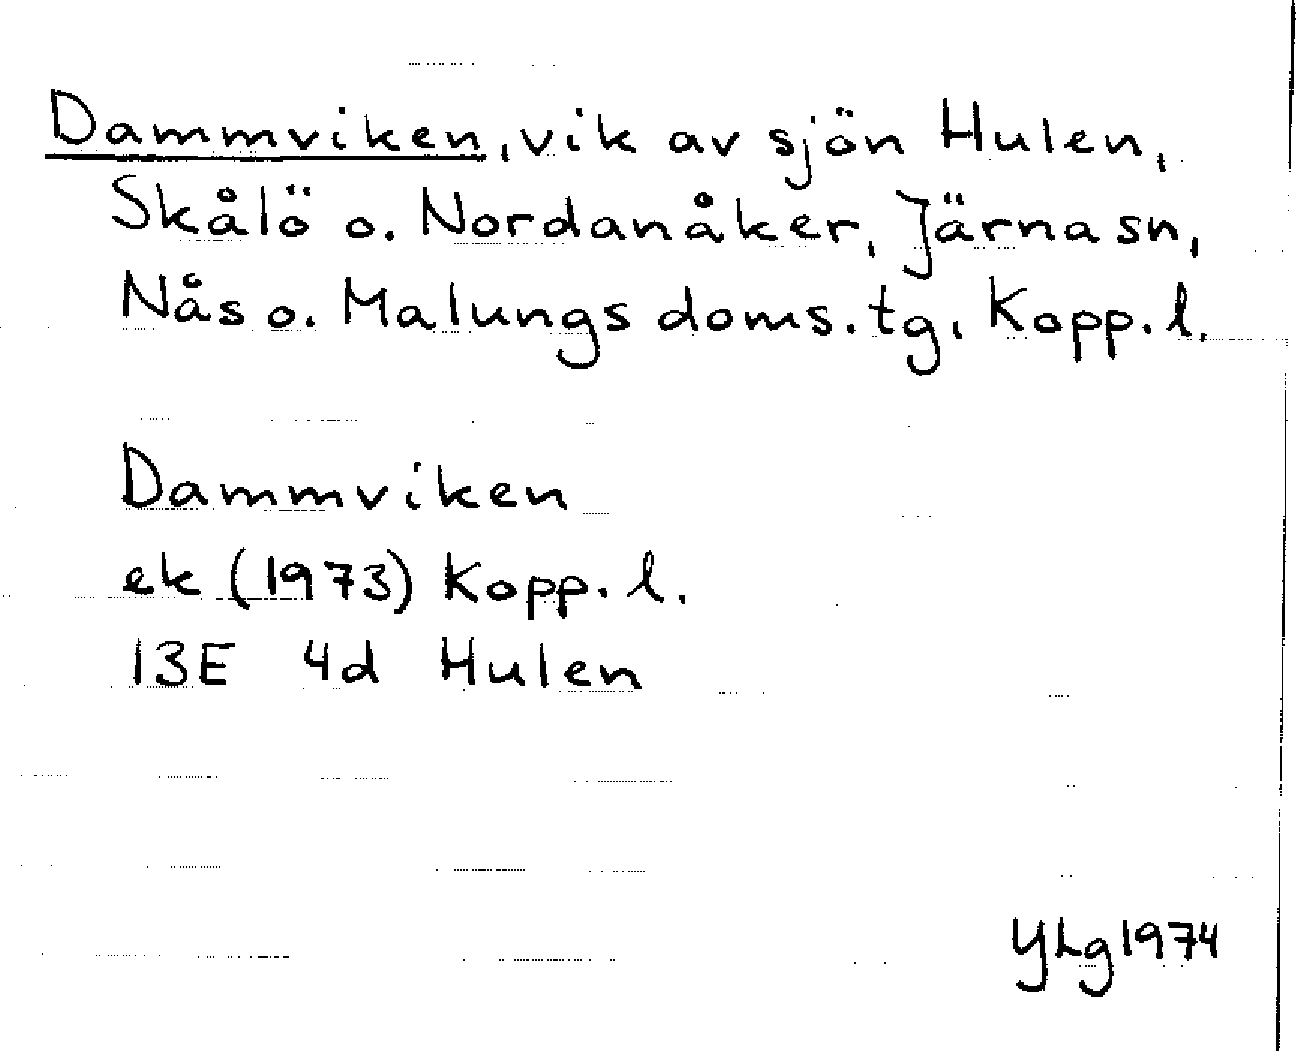 Dammviken, vik av sjön Hulen,
Skålö o. Nordanåker, Järna sn,
Nås o. Malungs doms.tg, Kopp.l.
Dammviken
ek (1973) Kopp.l.
13E 4d Hulen
YLg 1974